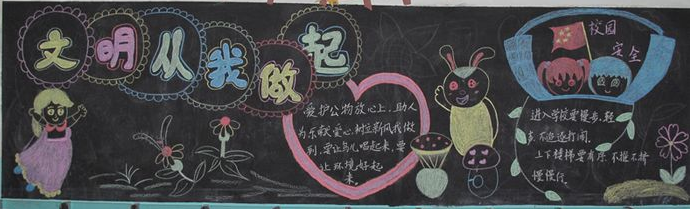 文明从我做起
爱护公物放心上,助人
为乐献爱心,树立新风我做
到,要让鸟儿唱起来,要
让环境好起
来。
校园
安全
进入学校要慢步,轻
声,不追逐打闹。
上下楼梯要有序,不拥不挤
慢慢行。